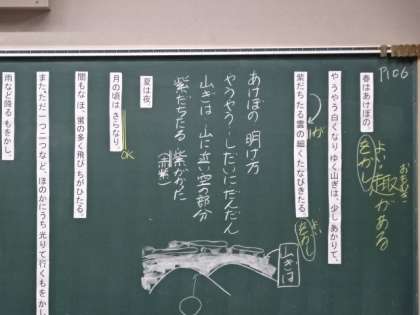 P106
春はあけぼの。
をかし
よい
趣がある
おもむき
やうやう白くなりゆく山ぎは、少しあかりて、
紫だちたる雲の細くたなびきたる。
が
をかし
あけぼの 明け方
やうやう…しだいにだんだん
山ぎは…山に近い空の部分
紫だちたる 紫がかった
山ぎは
夏は夜。
月の頃はさらなり。
OK
闇もなほ、蛍の多く飛びちがひたる。
また、ただ一つ二つなど、ほのかにうち光りて行くもをかし
雨など降るもをかし。